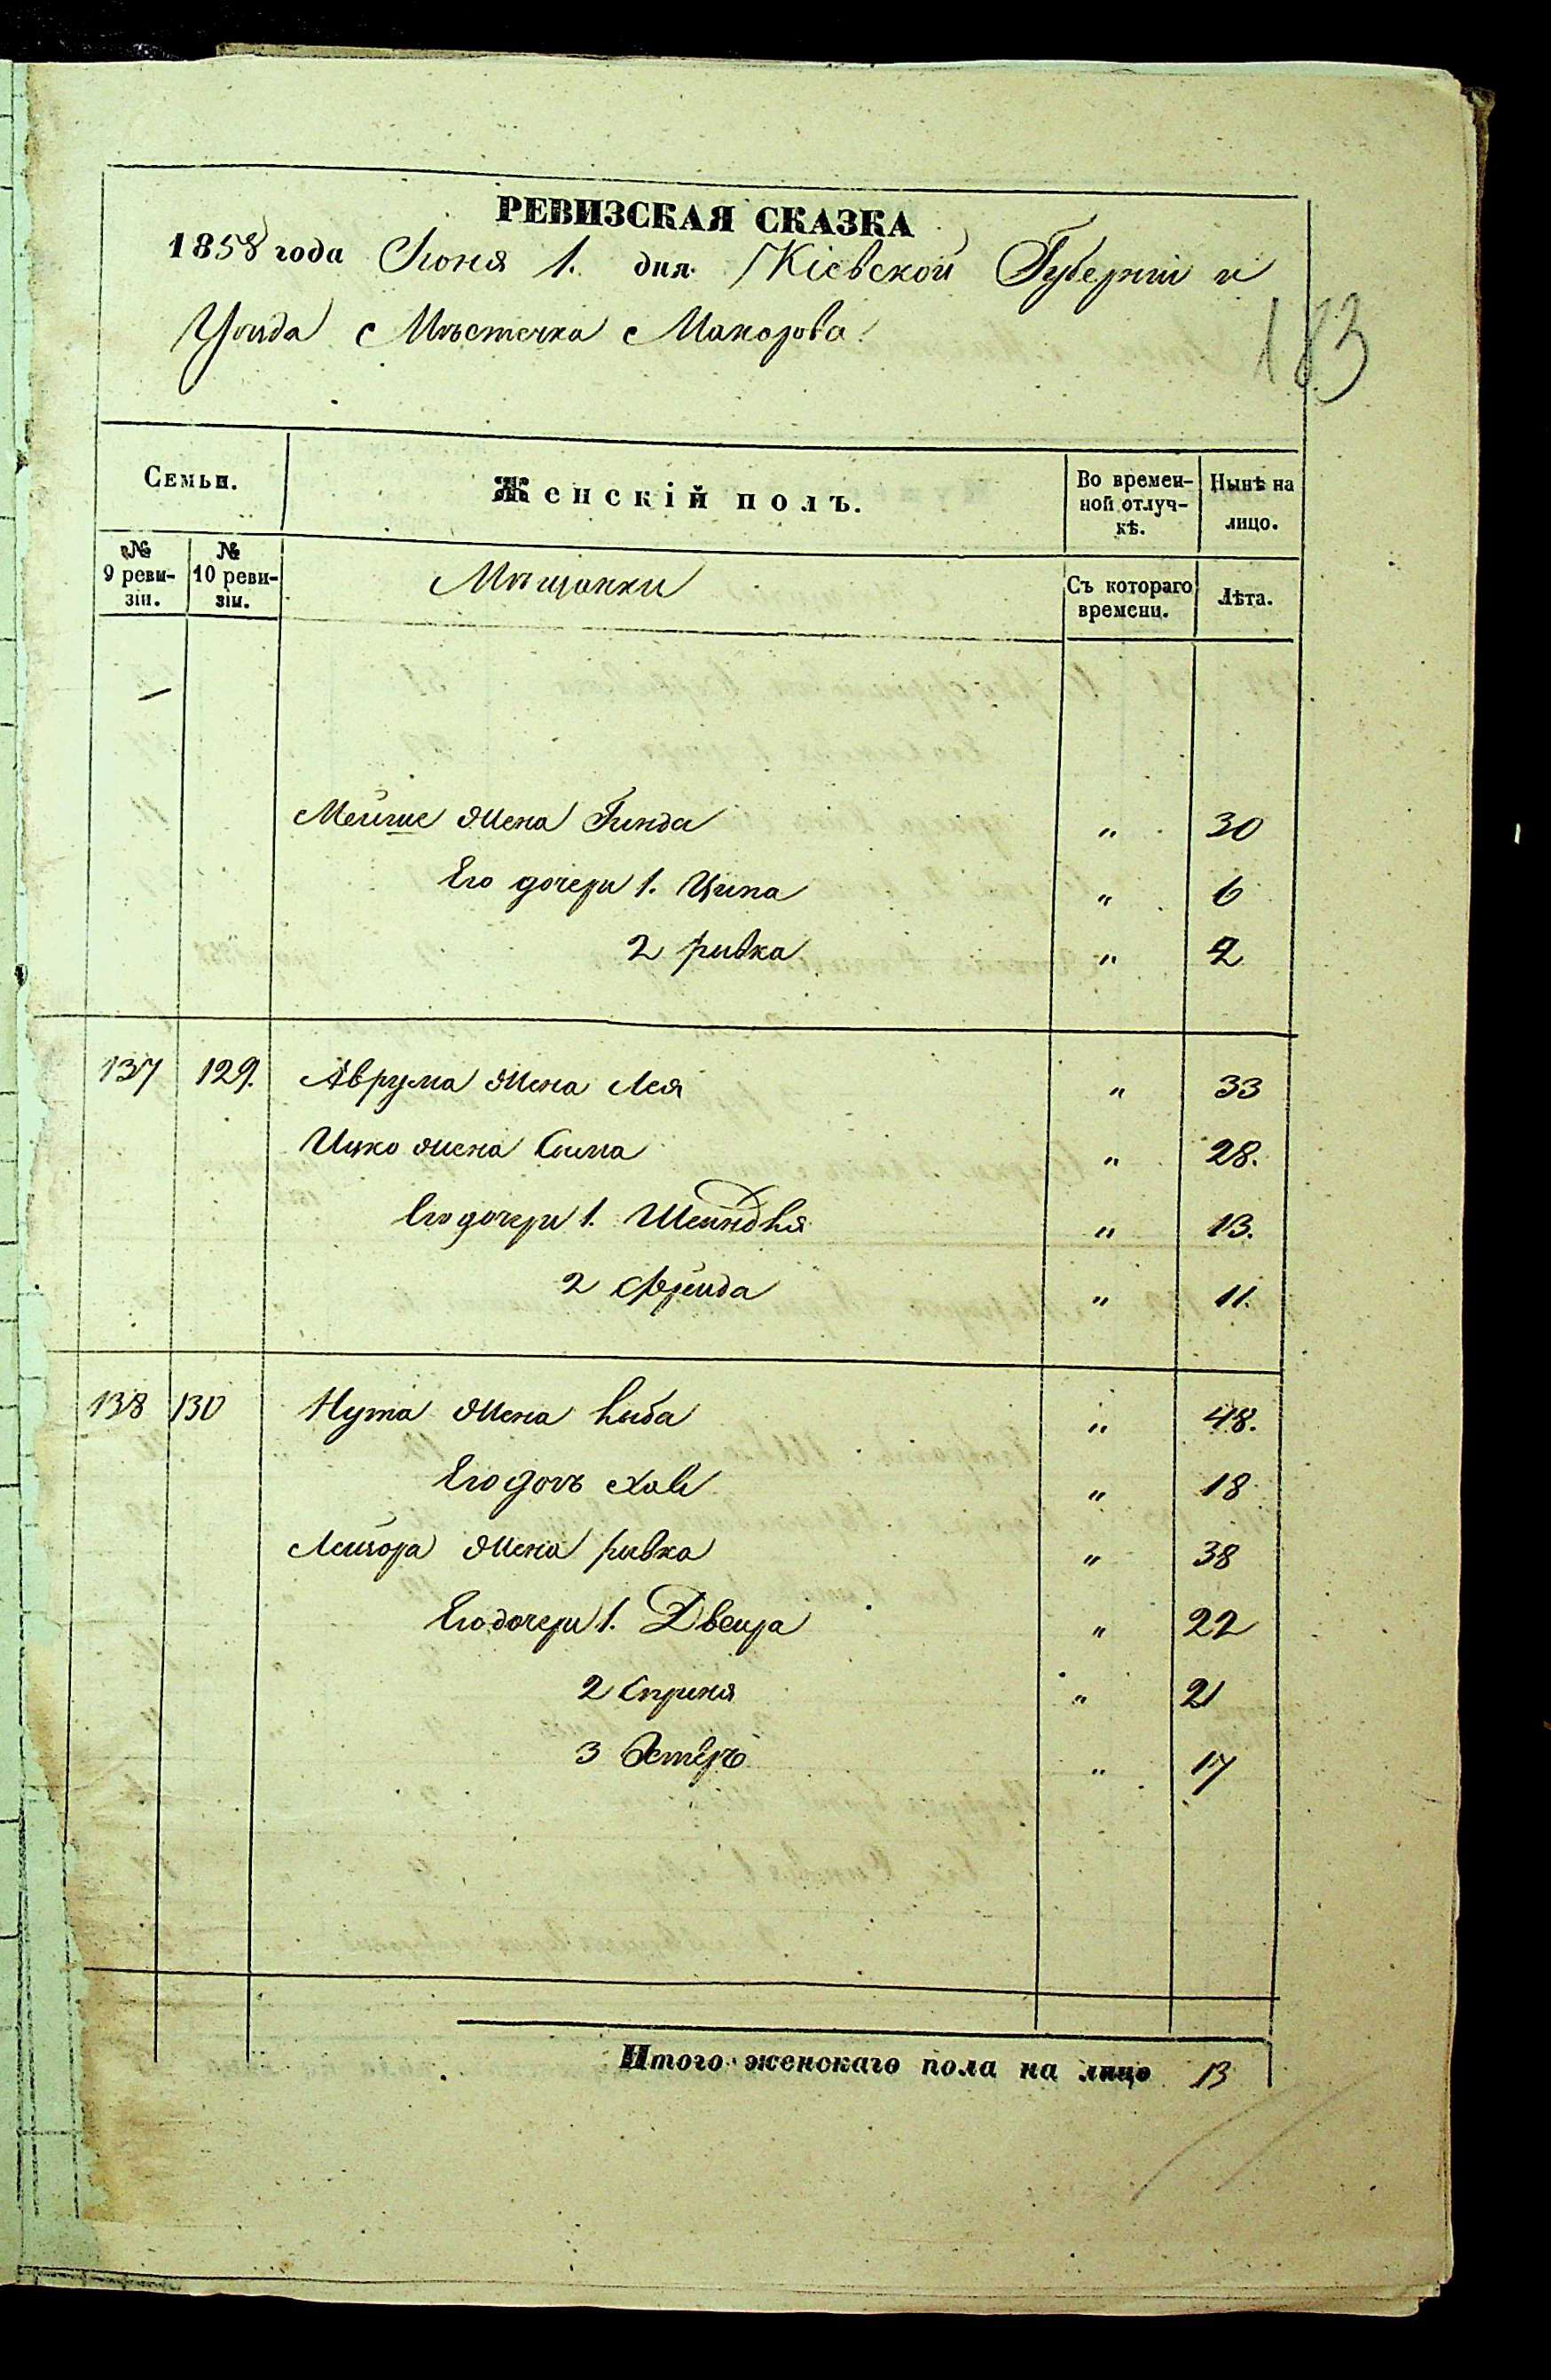 РЕВИЗСКАЯ СКАЗКА
1858 года Іюня 1. дня Кіевской Губерніи и
Уѣзда Мѣстечка Макарова
183
Семьи.
Женскій полъ.
Во времен-
ной отлуч-
кѣ.
Нынѣ на
лицо.
№
9 реви-
зіи.
№
10 реви-
зіи.
Мѣщанки
Съ котораго
времени.
Лѣта.
Мейше жена Гинда " 30
Его дочери 1. Ципа " 6
2 Ривка " 2
137 129. Аврума жена Лея " 33
Ицко жена Сима " 28.
Его дочери 1. Шейндля " 13.
2 Фрейда " 11.
138 130 Нута жена Либа " 48.
Его дочь Хаве " 18
Лейзора жена Ривка " 38
Его дочери 1. Двейра " 22
2 Сприня " 21
3 Эстеръ " 17
Итого женскаго пола на лицо 13